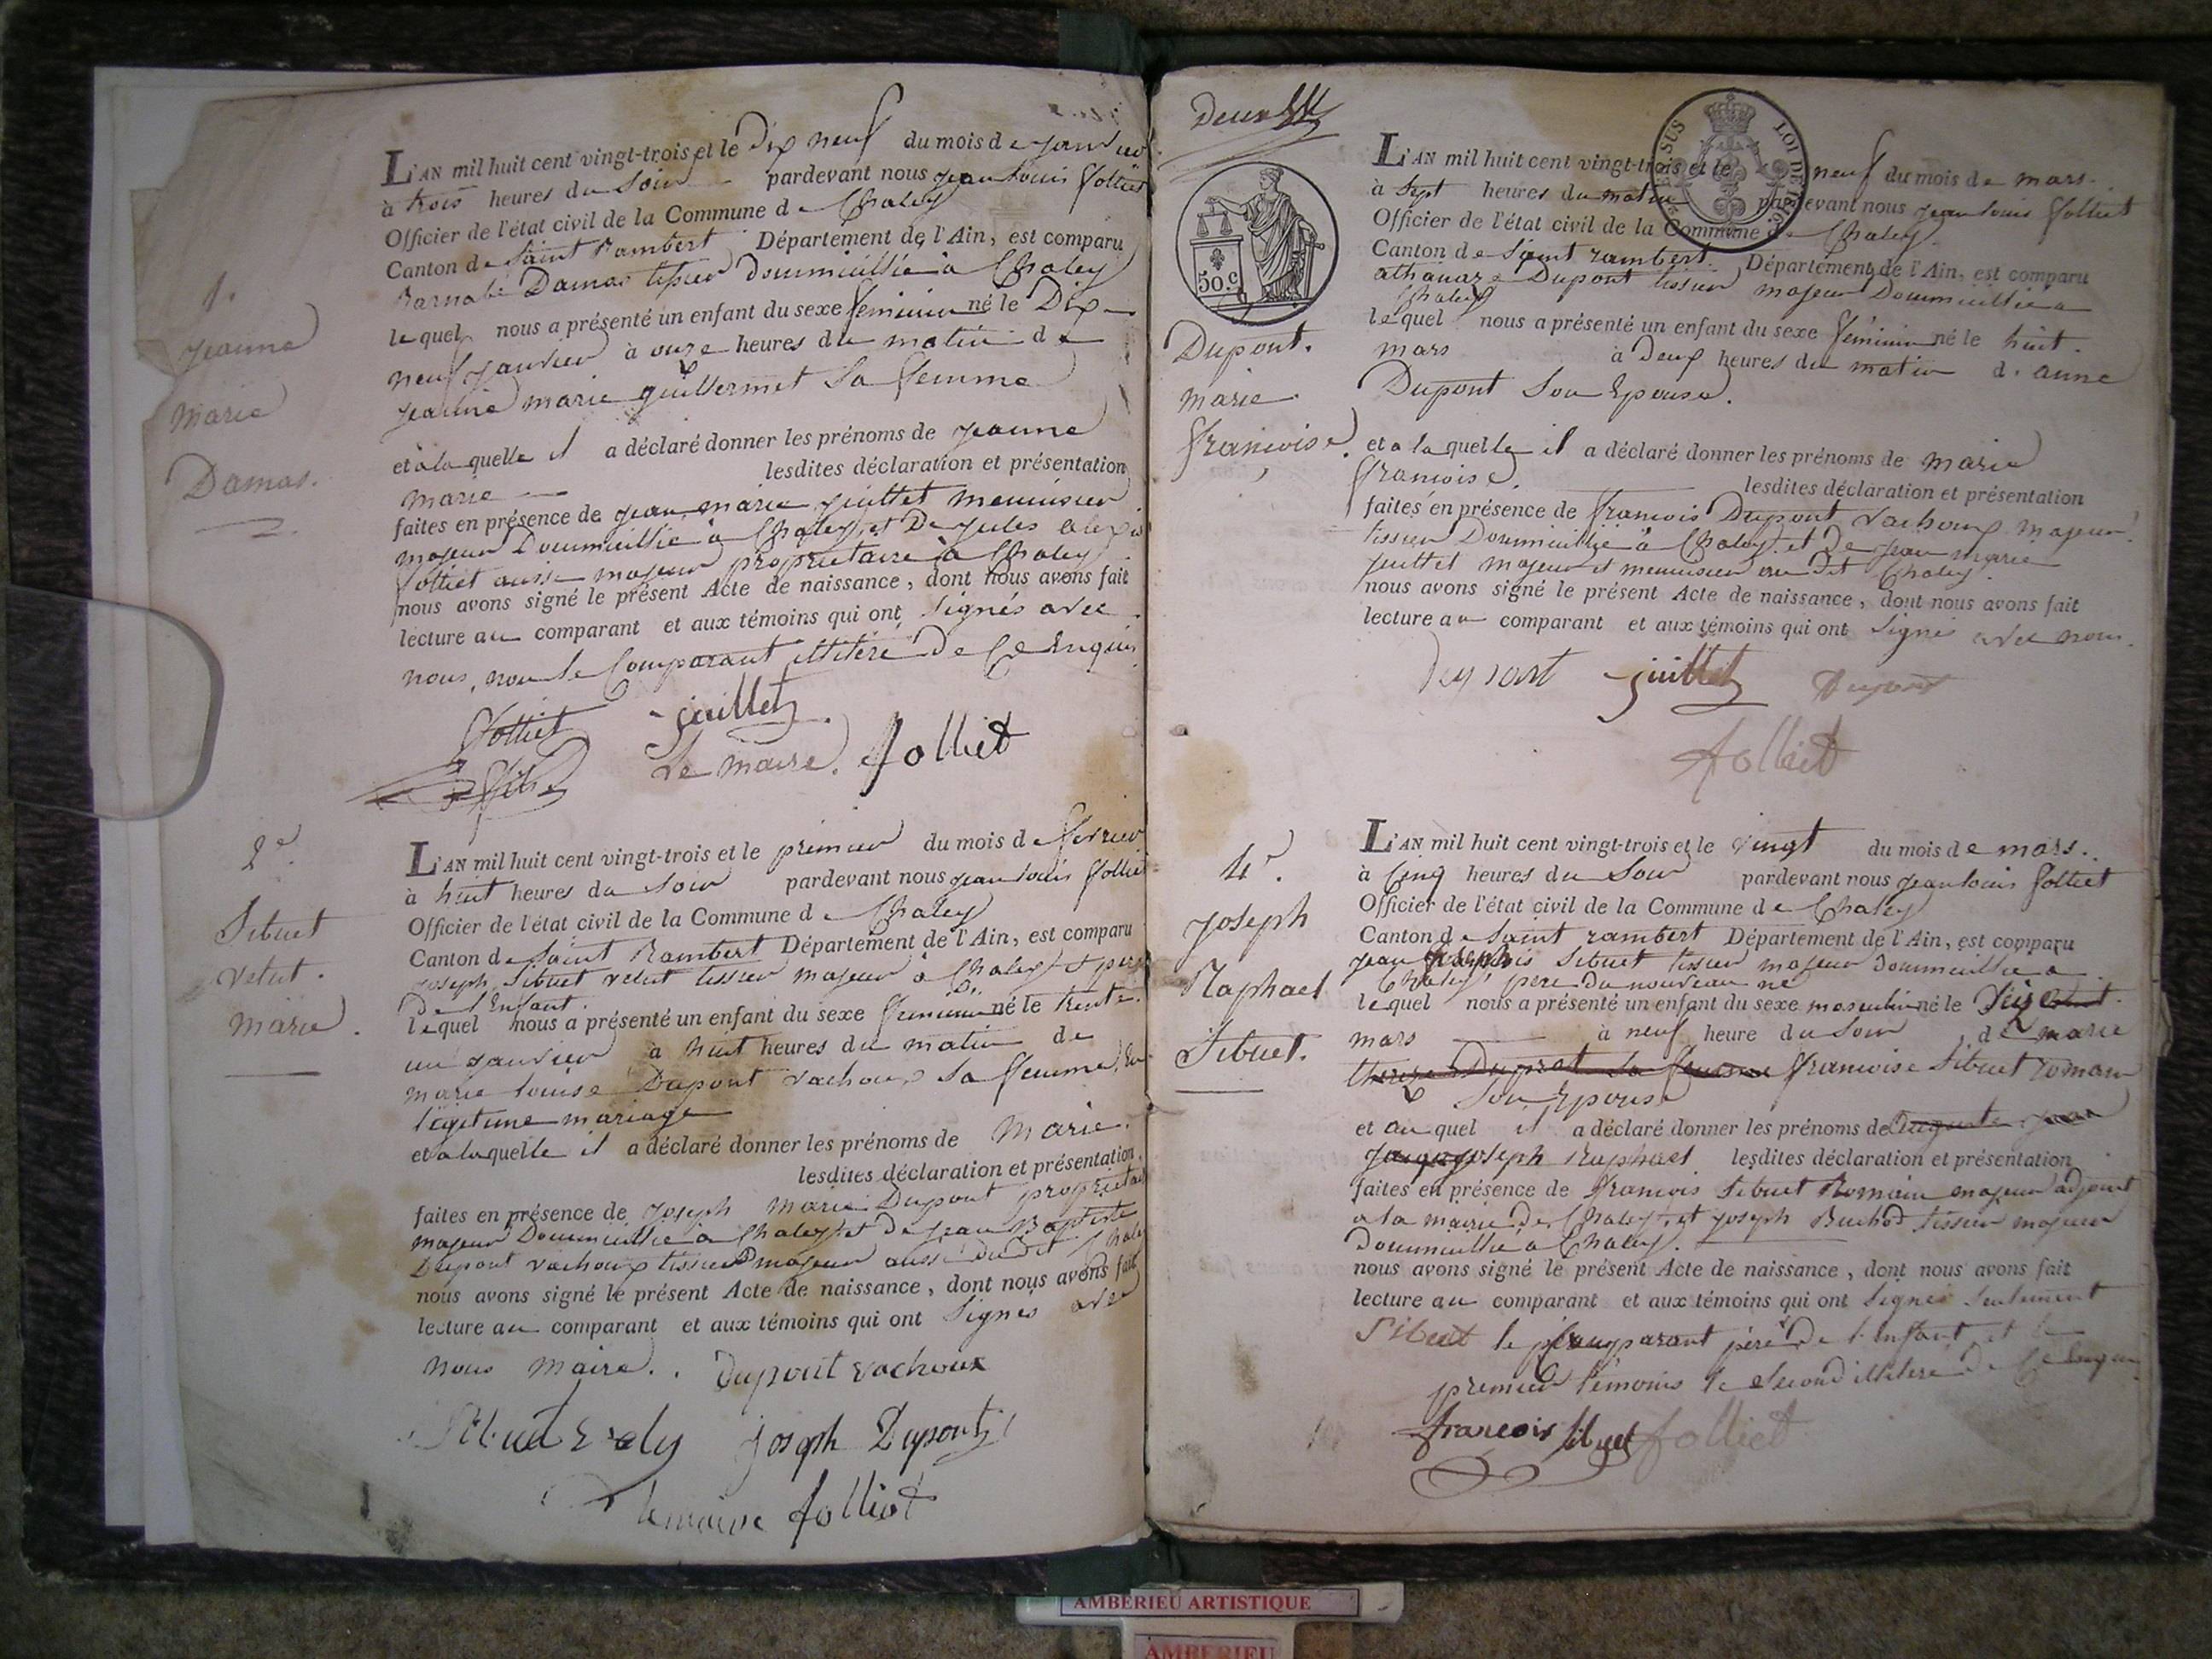 1.
Jeanne
Marie
Damas.
L'AN mil huit cent vingt-trois et le Dix neuf du mois de janvier
à trois heures du Soir pardevant nous jean Louis Folliet
Officier de l'état civil de la Commune de Chaley
Canton de Saint Rambert Département de l'Ain, est comparu
Barnabé Damas tissier Doummicillié à Chaley
lequel nous a présenté un enfant du sexe feminin né le Dix
neuf janvier à onze heures du matin de
jeanne marie guillermet Sa femme
et a laquelle il a déclaré donner les prénoms de jeanne
marie lesdites déclaration et présentation
faites en présence de jean marie juillet menuisier
majeur Doummicillié à Chaley et De jules alexis
folliet aussi majeur proprietaire à Chaley
nous avons signé le présent Acte de naissance, dont nous avons fait
lecture au comparant et aux témoins qui ont signés avec
nous, non le Comparant illitéré De Ce Enquis
folliet juillet
fils Le maire. folliet
2e.
Sibuet
velut.
marie.
L'AN mil huit cent vingt-trois et le premier du mois de fevrier
à huit heures du Soir pardevant nous jean Louis folliet
Officier de l'état civil de la Commune de Chaley
Canton de Saint Rambert Département de l'Ain, est comparu
joseph Sibuet velut tissier majeur à Chaley et pere
De l'Enfant.
lequel nous a présenté un enfant du sexe feminin né le trente
un janvier à huit heures du matin de
marie louise Dupont vachoux Sa femme En
légitime mariage
et a laquelle il a déclaré donner les prénoms de marie.
lesdites déclaration et présentation
faites en présence de joseph marie Dupont proprietaire
majeur Doummicillié à Chaley et De jean Baptiste
Dupont vachoux tissier majeur aussi dudit Chaley
nous avons signé le présent Acte de naissance, dont nous avons fait
lecture au comparant et aux témoins qui ont Signés avec
nous maire. Dupont vachoux
Sibuet joseph Dupont
le maire folliet
Deux
50.C
VERSUS LOI DE 1816
Dupont.
marie
francoise.
L'AN mil huit cent vingt-trois et le neuf du mois de mars.
à Sept heures du matin pardevant nous jean louis folliet
Officier de l'état civil de la Commune de Chaley
Canton de Saint rambert. Département de l'Ain, est comparu
athanaze Dupont tissier majeur Doummicillié à
Chaley
lequel nous a présenté un enfant du sexe féminin né le huit.
mars à Deux heures du matin d'anne
Dupont Son Epouse.
et a laquelle il a déclaré donner les prénoms de marie
francoise. lesdites déclaration et présentation
faites en présence de francois Dupont vachoux majeur
tissier Doummicillié à Chaley et De jean marie
juillet majeur et menuisier au dit Chaley.
nous avons signé le présent Acte de naissance, dont nous avons fait
lecture au comparant et aux témoins qui ont Signé avec nous.
Dupont juillet Dupont
folliet
4e.
joseph
Raphael
Sibuet.
L'AN mil huit cent vingt-trois et le vingt du mois de mars.
à Cinq heures du Soir pardevant nous jean louis folliet
Officier de l'état civil de la Commune de Chaley
Canton de Saint rambert Département de l'Ain, est comparu
jean Sibuet tissier majeur doummicillié à
Chaley pere Du nouveau né
lequel nous a présenté un enfant du sexe masculin né le
mars à neuf heure du Soir de marie
therese Dupont Sa femme francoise Sibuet romain
Son Epouse
et auquel il a déclaré donner les prénoms de Auguste jean
joseph Raphael lesdites déclaration et présentation
faites en présence de francois Sibuet Romain majeur adjoint
a la mairie de Chaley, et joseph Buchod tissier majeur
doummicillié à Chaley.
nous avons signé le présent Acte de naissance, dont nous avons fait
lecture au comparant et aux témoins qui ont Signés Seulement
Sibuet le Comparant père De l'Enfant et le
premier témoins le Second illiteré De Ce Enquis
francois Sibuet folliet
AMBERIEU ARTISTIQUE
AMBERIEU